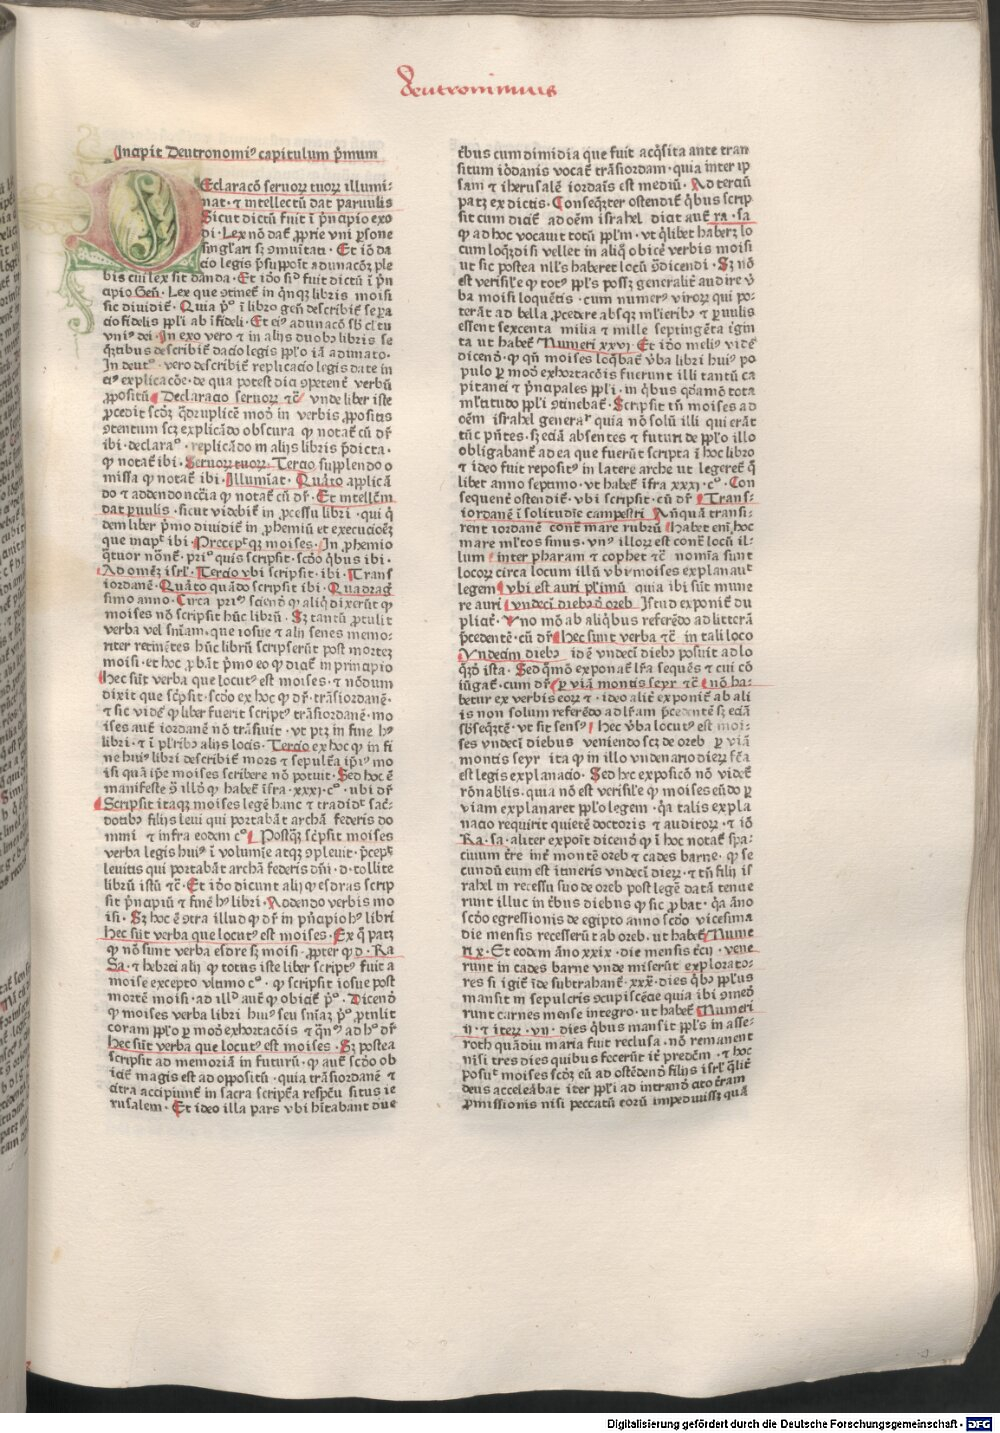 deutronimius
Incipit Deutronomi⁹ capitulum p̄mum
Declaracō seruoꝝ tuoꝝ illumi⸗
nat · ⁊ intellectū dat paruulis
Sicut dictū fuit ī pn̄cipio exo
di · Lex nō dat᷑ ꝓprie vni ꝑsone
singl'ari sꝫ ꝯmuītati · Et iō da
cio legis p̄supponit adunacōꝫ ple
bis cui lex sit danda · Et iō sic̄ fuit dictū ī pn̄
cipio Gen̄ · Lex que ꝯtinet᷑ in qn̄qꝫ libris moisi
sic diuidit᷑ · Quia p̄º ī libro gen̄ describit᷑ sepa
cio fidelis ppl'i ab īfideli · Et ei⁹ adunacō sb̄ cl'tu
vni⁹ dei · In exo vero ⁊ in alijs duob⁹ libris se
quētibus describit᷑ dacio legis ppl'o iā adunato ·
In deutº · vero describit᷑ replicacio legis date in
ei⁹ explicacōe · de qua potest dici ꝯpetent᷑ verbū
ꝓpositū Declaracio seruoꝝ ⁊c̄ vnde liber iste
ꝓcedit scd̄ꝫ qd̄ruplicē modū in verbis ꝓpositis
ꝯtentum scꝫ explicādo obscura ꝙ notat᷑ cū dr̄
ibi · declaraº · replicādo in alijs libris p̄dicta ·
ꝙ notat᷑ ibi · Seruoꝝ tuoꝝ · Tercio supplendo o
missa ꝙ notat᷑ ibi · Illumīat · Quarto applicā
do ⁊ addendo nccīa ꝙ notat᷑ cū dr̄ · Et intellectū
dat paruulis · sicut videbit᷑ in ꝓcessu libri · qui q
dem liber p̄mo diuidit᷑ in ꝓhemiū et execucioēꝫ
que incipit ibi · Precepitqꝫ moises · In ꝓhemio
quatuor nōnt᷑ · pri⁹ quis scripsit · scd̄o qb̄us ibi ·
Ad omēꝫ isrl' · Tercio vbi scripsit · ibi · Trans
iordanē · Quarto quādo scripsit ibi · Quadrag
simo anno · Circa pri⁹ sciend ꝙ aliq dixerūt ꝙ
moises nō scripsit hūc librū · Sꝫ tantū ꝓtulit
verba vel sn̄iam · que iosue ⁊ alij senes memo⸗
riter retinētes hūc librū scripserūt post morteꝫ
moisi · et hoc ꝓbāt p̄mo eo ꝙ dicit᷑ in principio
Hec sūt verba que locut⁹ est moises · ⁊ nōdum
dixit que sc̄psit · scd̄o ex hoc ꝙ dr̄ · trāsiordanē ·
⁊ sic videt᷑ ꝙ liber fuerit script⁹ trāsiordanē · mo
ises aut᷑ iordanē nō trāsiuit · vt ptꝫ in fine h⁹
libri · ⁊ ī pl'ribꝫ alijs locis · Tercio ex hoc ꝙ in fi
ne hui⁹ libri describit᷑ mors ⁊ sepult᷑a ip̄i⁹ mo
isi quā ip̄e moises scribere nō potuit · Sed hoc ē
manifeste ꝯ illō ꝙ habet᷑ īfra · xxxj · cº · vbi dr̄
Scripsit itaqꝫ moises legē hanc ⁊ tradidit sac̄⸗
dotibꝫ filijs leui qui portabāt archā federis do
mini ⁊ infra eodem cº Postq̄ꝫ sc̄psit moises
verba legis hui⁹ ī volumīe atqꝫ ꝯpleuit · p̄cepit
leuitis qui portabāt archā federis dn̄i · d · tollite
librū istū ⁊c̄ · Et iō dicunt alij ꝙ esdras scrip
sit pn̄cipiū ⁊ finē h⁹ libri · Addendo verbis mo
isi · Sꝫ hoc ē ꝯtra illud ꝙ dr̄ in pn̄cipio h⁹ libri
hec sūt verba que locut⁹ est moises · Ex q patꝫ
ꝙ nō sunt verba esdre sꝫ moisi · ꝓpter ꝙ d · Ra
Sa · ⁊ hebrei alij ꝙ totus iste liber script⁹ fuit a
moise excepto vltimo cº · ꝙ scripsit iosue post
mortē moisi · ad ill'd aut᷑ ꝙ obicit᷑ p̄º · Dicend
ꝙ moises verba libri hui⁹ seu sn̄iaꝫ p̄º ꝓtulit
coram ppl'o ꝑ modū exhortacōis ⁊ q̄nt⁹ ad hº dr̄
hec sūt verba que locut⁹ est moises · Sꝫ postea
scripsit ad memoriā in futurū · ꝙ aut᷑ scd̄o ob
icit᷑ magis est ad oppositū · quia trāsiordanē ⁊
citra accipiunt᷑ in sacra script᷑a respc̄tu situs ie
rusalem · Et ideo illa pars vbi hītabant due
tribus cum dimidia que fuit acq̄sita ante tran
situm iordanis vocat᷑ trāsiordam · quia inter ip
sam ⁊ iherusalē iordāis est mediū · Ad terciū
patꝫ ex dictis · Consequēter ostendit᷑ qb̄us scrip
sit cum dicit᷑ ad oēm israhel dicit aut᷑ ra · sa
ꝙ ad hoc vocauit totū ppl'm · vt ql̄ibet haberꝫ lo
cum loquēdi si vellet in aliq obicē verbis moisi
vt sic postea null⁹s haberet locū ꝯdicendi · Sꝫ nō
est verisil'e ꝙ tot⁹ ppl's possꝫ generalit᷑ audire v̄
ba moisi loquētis · cum numer⁹ viroꝝ qui po⸗
terāt ad bella ꝓcedere absqꝫ ml'ieribꝫ ⁊ paruulis
essent sexcenta milia ⁊ mille septingēta t͡gin
ta vt habet᷑ Numeri xxvj · Et iō meli⁹ videt᷑
dicend · ꝙ qn̄ moises loq̄bat᷑ v̄ba libri hui⁹ po
pulo ꝑ modū exhortacōis fuerunt illi tantū ca
pitanei ⁊ pn̄cipales ppl'i · in qb̄us qd̄āmō tota
ml'titudo ppl'i ꝯtinebat᷑ · Scripsit tn̄ moises ad
oēm israhel genera⁹ quia nō solū illi qui erāt
tūc pn̄tes · sꝫ eciā absentes ⁊ futuri de ppl'o illo
obligabant᷑ ad ea que fuerūt scripta ī hoc libro
⁊ ideo fuit reposit⁹ in latere arche vt legeret᷑ q
libet anno septimo · vt habet᷑ īfra xxxj · cº · Con
sequent᷑ ostendit᷑ · vbi scripsit · cū dr̄ Trans⸗
iordanē ī solitudīe campestri An̄quā transi⸗
rent iordanē cont᷑ mare rubrū habet eni hoc
mare ml'tos sinus · vn⁹ illoꝝ est cont᷑ locū il⸗
lum inter pharam ⁊ cophet ⁊c̄ nomīa sunt
locoꝝ circa locum illū vbi moises explanauit
legem vbi est auri pl'imū quia ibi sūt mine
re auri vndecī diebꝫ d̄ oreb Istud exponit᷑ du
plicit᷑ · Vno mō ab aliqbus referēdo ad litterā
p̄cedentē · cū dr̄ hec sunt verba ⁊c̄ in tali loco
Vndecim diebꝫ id ē vndeci diebꝫ posuit ad lo
qndū ista · Sed q̄mō exponat᷑ lr̄a sequēs ⁊ cui cō
iūgat᷑ · cum dr̄ ꝑ viā montis seyr ⁊c̄ nō ha⸗
betur ex verbis eoꝝ ⁊ · ideo alit᷑ exponit᷑ ab ali
is non solum referēdo ad lr̄am p̄cedentē sꝫ eciā
sb̄seqn̄tē · vt sit sens⁹ Hec v̄ba locut⁹ est moi⸗
ses vndeci diebus veniendo scꝫ de oreb ꝑ viā
montis seyr ita ꝙ in illo vndenario dieꝝ fc̄a
est legis explanacio · Sed hec exposicō nō videt᷑
rōnabilis · quia nō est verisil'e ꝙ moises eūdo ꝑ
viam explanaret ppl'o legem · q̄a talis expla
nacio requirit quietē doctoris ⁊ auditoꝝ · ⁊ iō
Ra · sa · aliter expoīt dicend ꝙ ī hoc notat᷑ spa⸗
cium t᷑re int᷑ montē oreb ⁊ cades barne · ꝙ se
cundū eum est itineris vndeci dieꝝ · ⁊ tn̄ filij is
rahel in recessu suo de oreb post legē datā tenue
runt illuc in trībus diebus ꝙ sic ꝓbat · q̄a āno
scd̄o egressionis de egipto anno scd̄o vicesima
die mensis recesserūt ab oreb · vt habet᷑ Nume
ri x · Et eodem āno xxix · die mensis t᷑cij · vene
runt in cades barne vnde miserūt explorato⸗
res si igit᷑ īde subtrahant᷑ · xxx · dies qb̄us ppl'us
mansit in sepulcris ꝯcupiscēcie quia ibi ꝯmed
runt carnes mense integro · vt habet᷑ Numeri
ij · ⁊ iteꝝ · vij · dies qb̄us mansit ppl's in asse⸗
roth quādiu maria fuit reclusa · nō remanent
nisi tres dies quibus fecerūt it᷑ predc̄m · ⁊ hoc
posuit moises scd̄ꝫ eū ad ostēdend filijs isrl' qlīt᷑
deus acceleābat iter ppl'i ad intrand cito t᷑ram
ꝓmissionis nisi peccatū eoꝝ impediuissꝫ quā
Digitalisierung gefördert durch die Deutsche Forschungsgemeinschaft · DFG